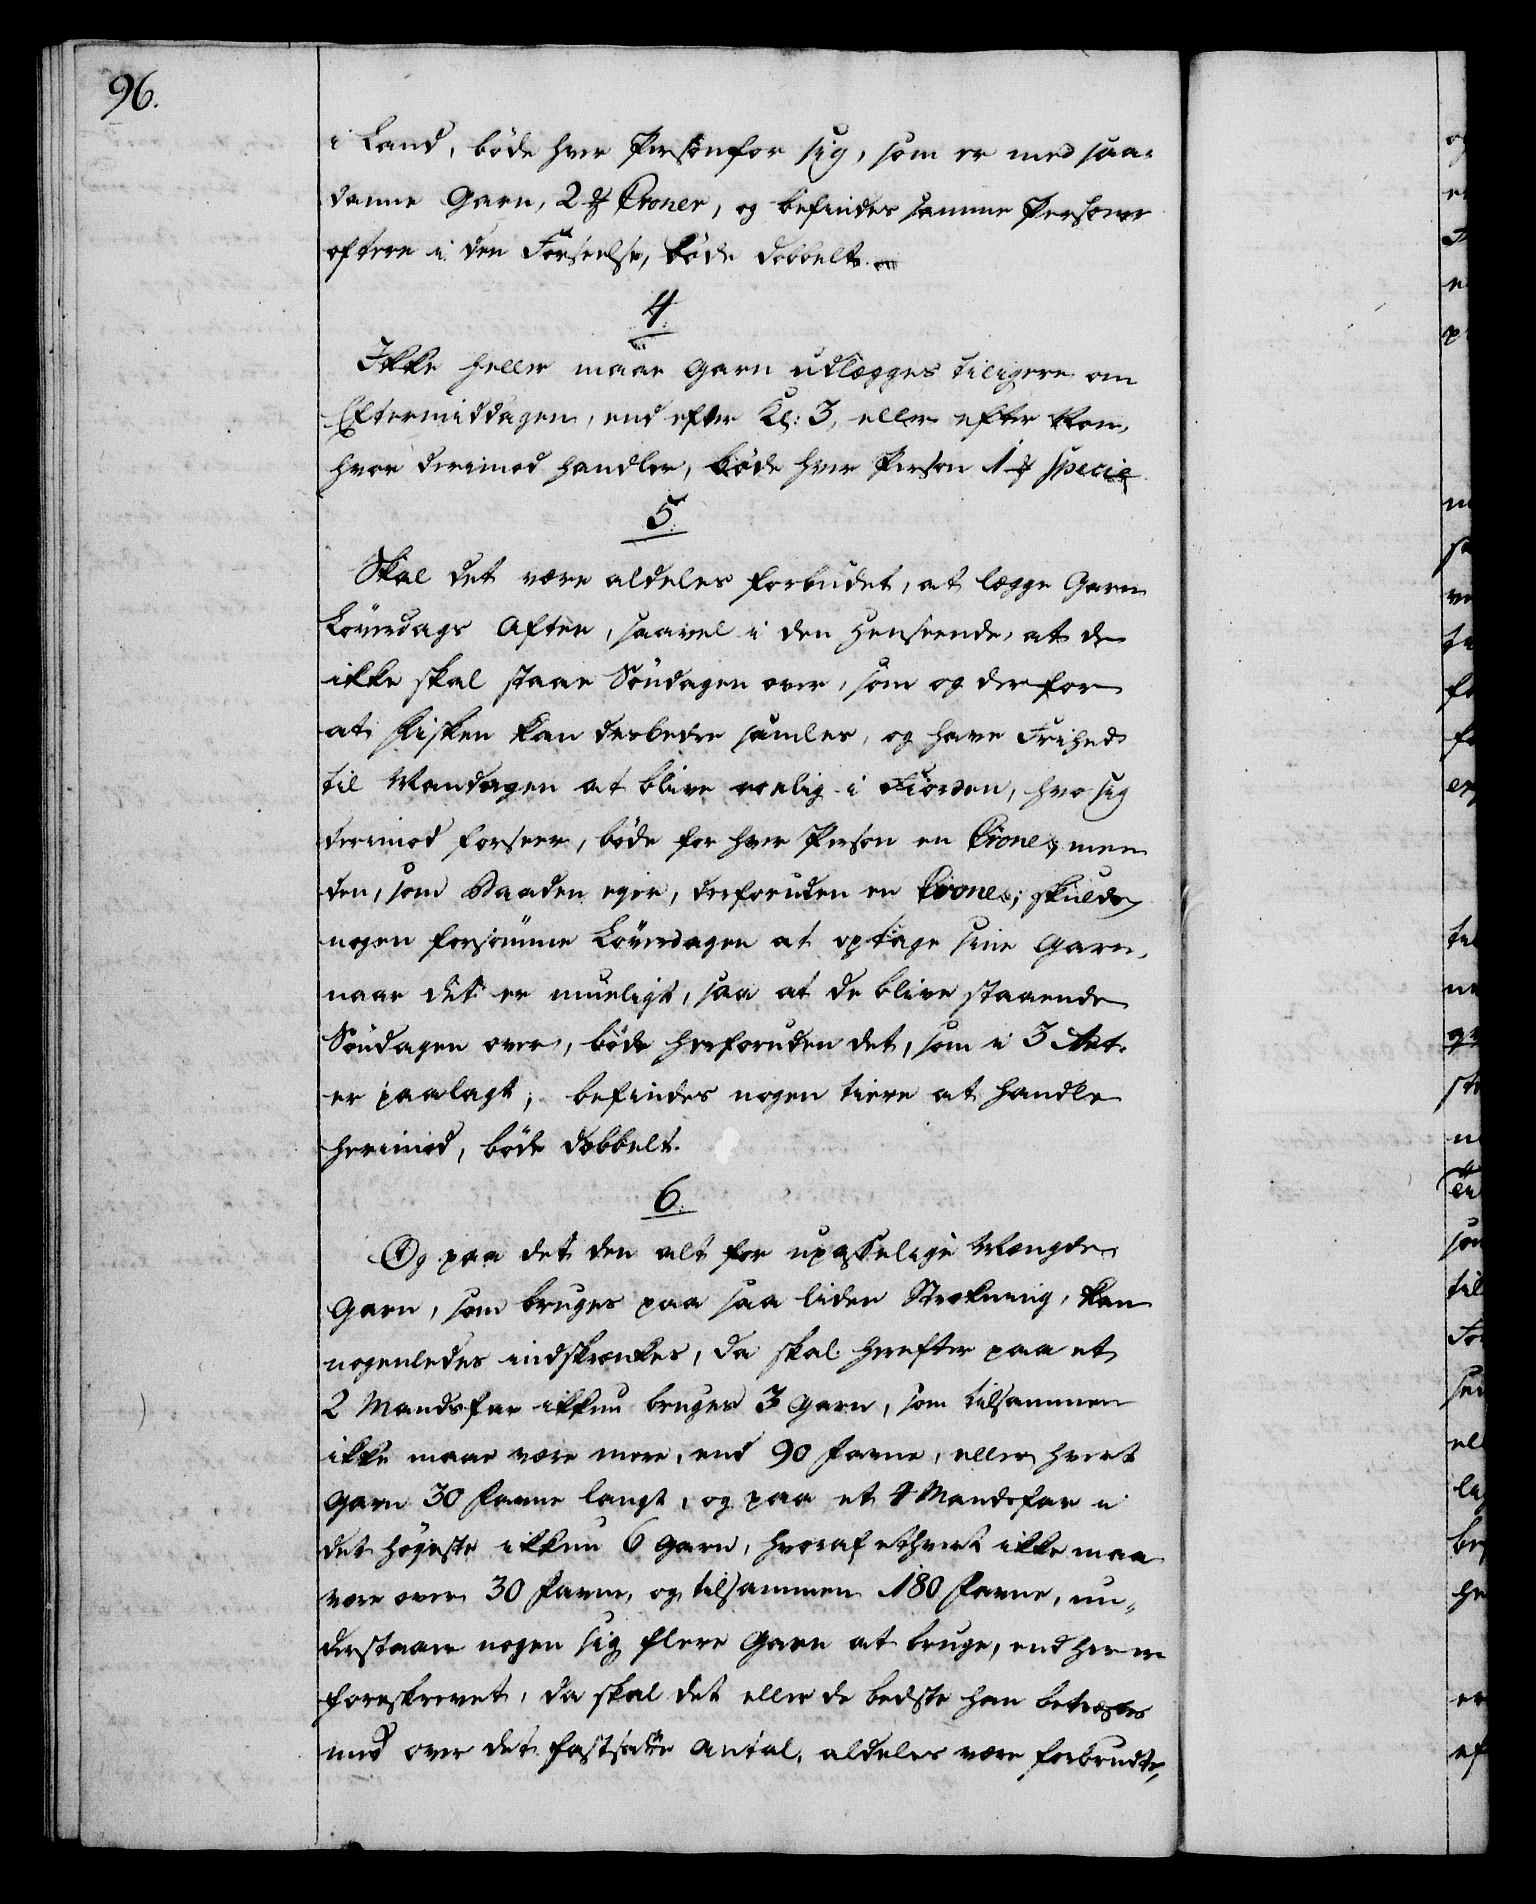 96.
i Land, böde hver Person for sig, som er med saa-
danne Garn, 2 Croner, og befindes samme Personer
oftere i den Forseelse, böde dobbelt.
4.
Ikke heller maae Garn udlægges tiligere om
Eftermiddagen, end efter Kl: 3, eller efter Non,
hvor derimod handler, böde hver Person 1 specie
5.
Skal det være aldeles forbudet, at lægge Garn
Löverdags Aften, saavel i den Henseende, at de
ikke skal staae Söndagen over, som og derfor
at Fisken kan desbedre samles, og have Frihed
til Mandagen at blive roelig i Fiorden, hvo sig
derimod forseer, böde for hver Person en Crone, men
den, som Baaden eyer, derforuden en Crone; skulde
nogen forsömme Löverdagen at optage sine Garn,
naar det er mueligt, saa at de blive staaende
Söndagen over, böde herforuden det, som i 3 Art.
er paalagt; befindes nogen tiere at handle
herimod, böde dobbelt.
6.
Og paa det den alt for upasselige Mængde
Garn, som bruges paa saa liden Strekning, kan
nogenledes indskrenkes, da skal herefter paa et
2 Mandsfar ikkun bruges 3 Garn, som tilsammen
ikke maae være mere, end 90 Favne, eller hvert
Garn 30 Favne langt, og paa et 4 Mandsfar i
det högeste ikkun 6 Garn, hvoraf ethvert ikke maa
være over 30 Favne, og tilsammen 180 Favne, un-
derstaaer nogen sig flere Garn at bruge, end her er
foreskrevet, da skal det eller de bedste han betrædes
med over det fastsatte Antal, aldeles være forbrudte,